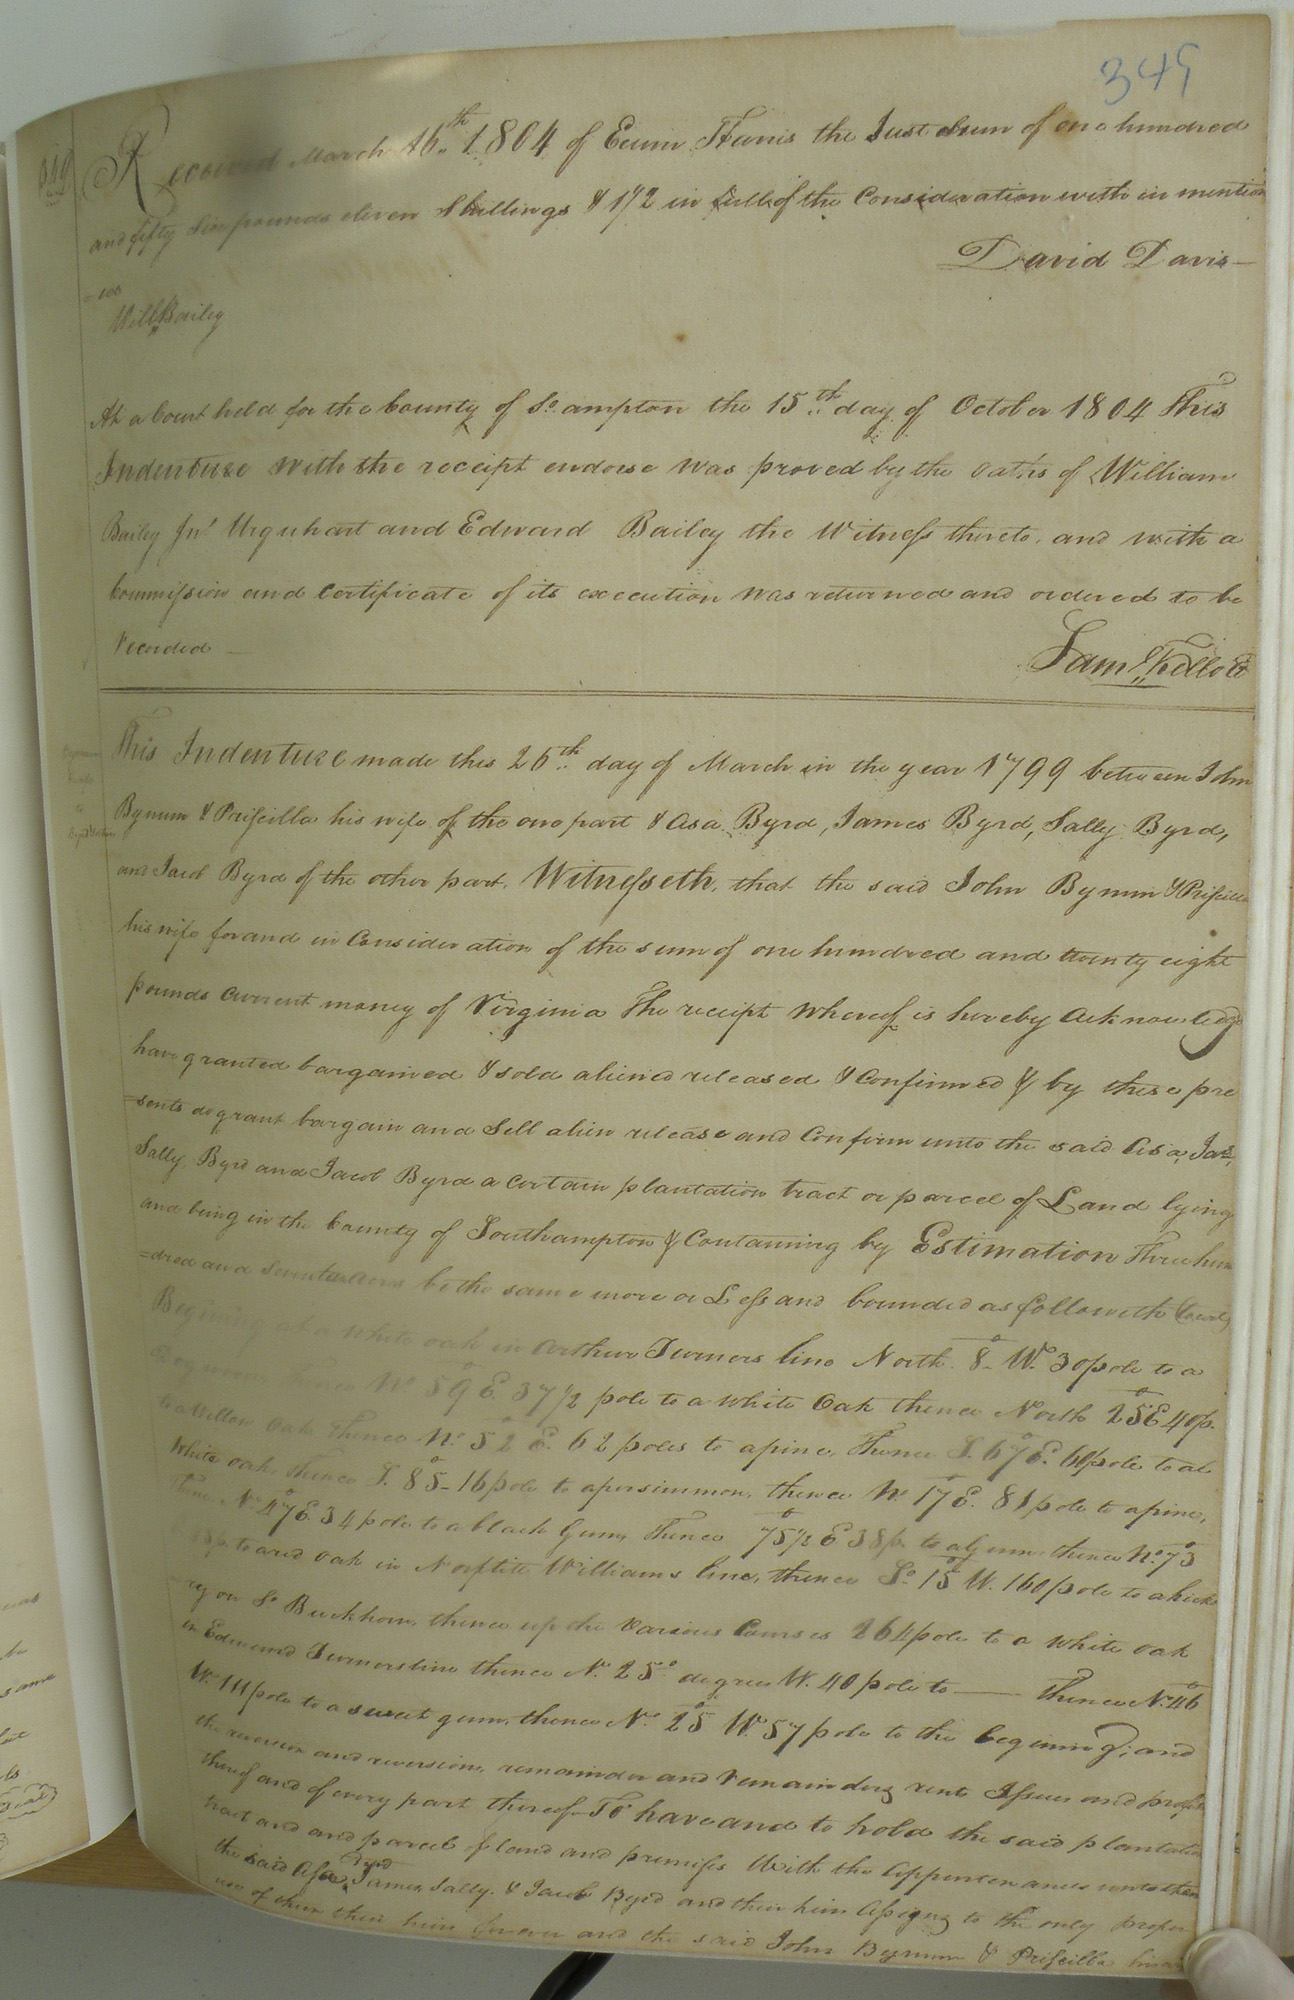 349
Received March 16th 1804 of Ewin Harris the Just Sum of one hundred
and fifty Six pounds eleven Shillings & 1½ in full of the Consideration with in mention
David Davis
= ed
Will Bailey
At a Court held for the County of So ampton the 15th day of October 1804 This
Indenture with the receipt endorse was proved by the oaths of William
Bailey Jnr Urquhart and Edward Bailey the Witness thereto, and with a
Commission and certificate of its execution was returned and ordered to be
recorded
Saml Kello Ct
This Indenture made this 26th day of March in the year 1799 between John
Bynum & Priscilla his wife of the one part & Asa Byrd, James Byrd, Sally Byrd,
and Jacob Byrd of the other part, Witnesseth, that the said John Bynum & Priscilla
his wife for and in Consideration of the sum of one hundred and twenty eight
pounds current money of Virginia The receipt whereof is hereby Acknowledg
have granted bargained & sold aliened released & Confirmed & by these pre
=sents do grant bargain and Sell alien release and Confirm unto the said Asa, Jas,
Sally Byrd and Jacob Byrd a certain plantation tract or parcel of Land lying
and being in the County of Southampton & Containing by Estimation Three hun
=dred and Seventeen be the same more or Less and bounded as followeth
Begining at a white oak in Arthur Turners line North 8° W. 30 pole to a
thence No 59° E. 37 1/2 pole to a white Oak thence North 25° E 40 p.
to a Willow Oak thence No. 52° E. 62 poles to a pine, Thence S. 67° E. 60 pole to a
white oak, thence S. 85° 16 pole to a persimmon, thence No 17° E. 81 pole to a pine,
Thence No 47° E. 34 pole to a black Gum, Thence 75°1/2 E 38 p. to a gum thence No. 73°
to a red Oak in Norflite Williams line, thence So 15° W. 160 pole to a hick
ry on So Buckhorn, thence up the Various Courses 264 pole to a white oak
in Edmund Turners line thence No. 25° degrees W. 40 pole to — thence No. 46°
W. 111 pole to a sweet gum, thence No. 25° W. 57 pole to the begining; and
the reversion and reversions, remainder and remainders rents Issues and profits
thereof and of every part thereof To have and to hold the said plantation
tract and and parcel of land and premises With the Appurtenances unto them
the said Asa, Byrd James, Sally, & Jacob Byrd and their heirs Assigns to the only proper
use of them their heirs forever and the said John Bynum & Priscilla his wi